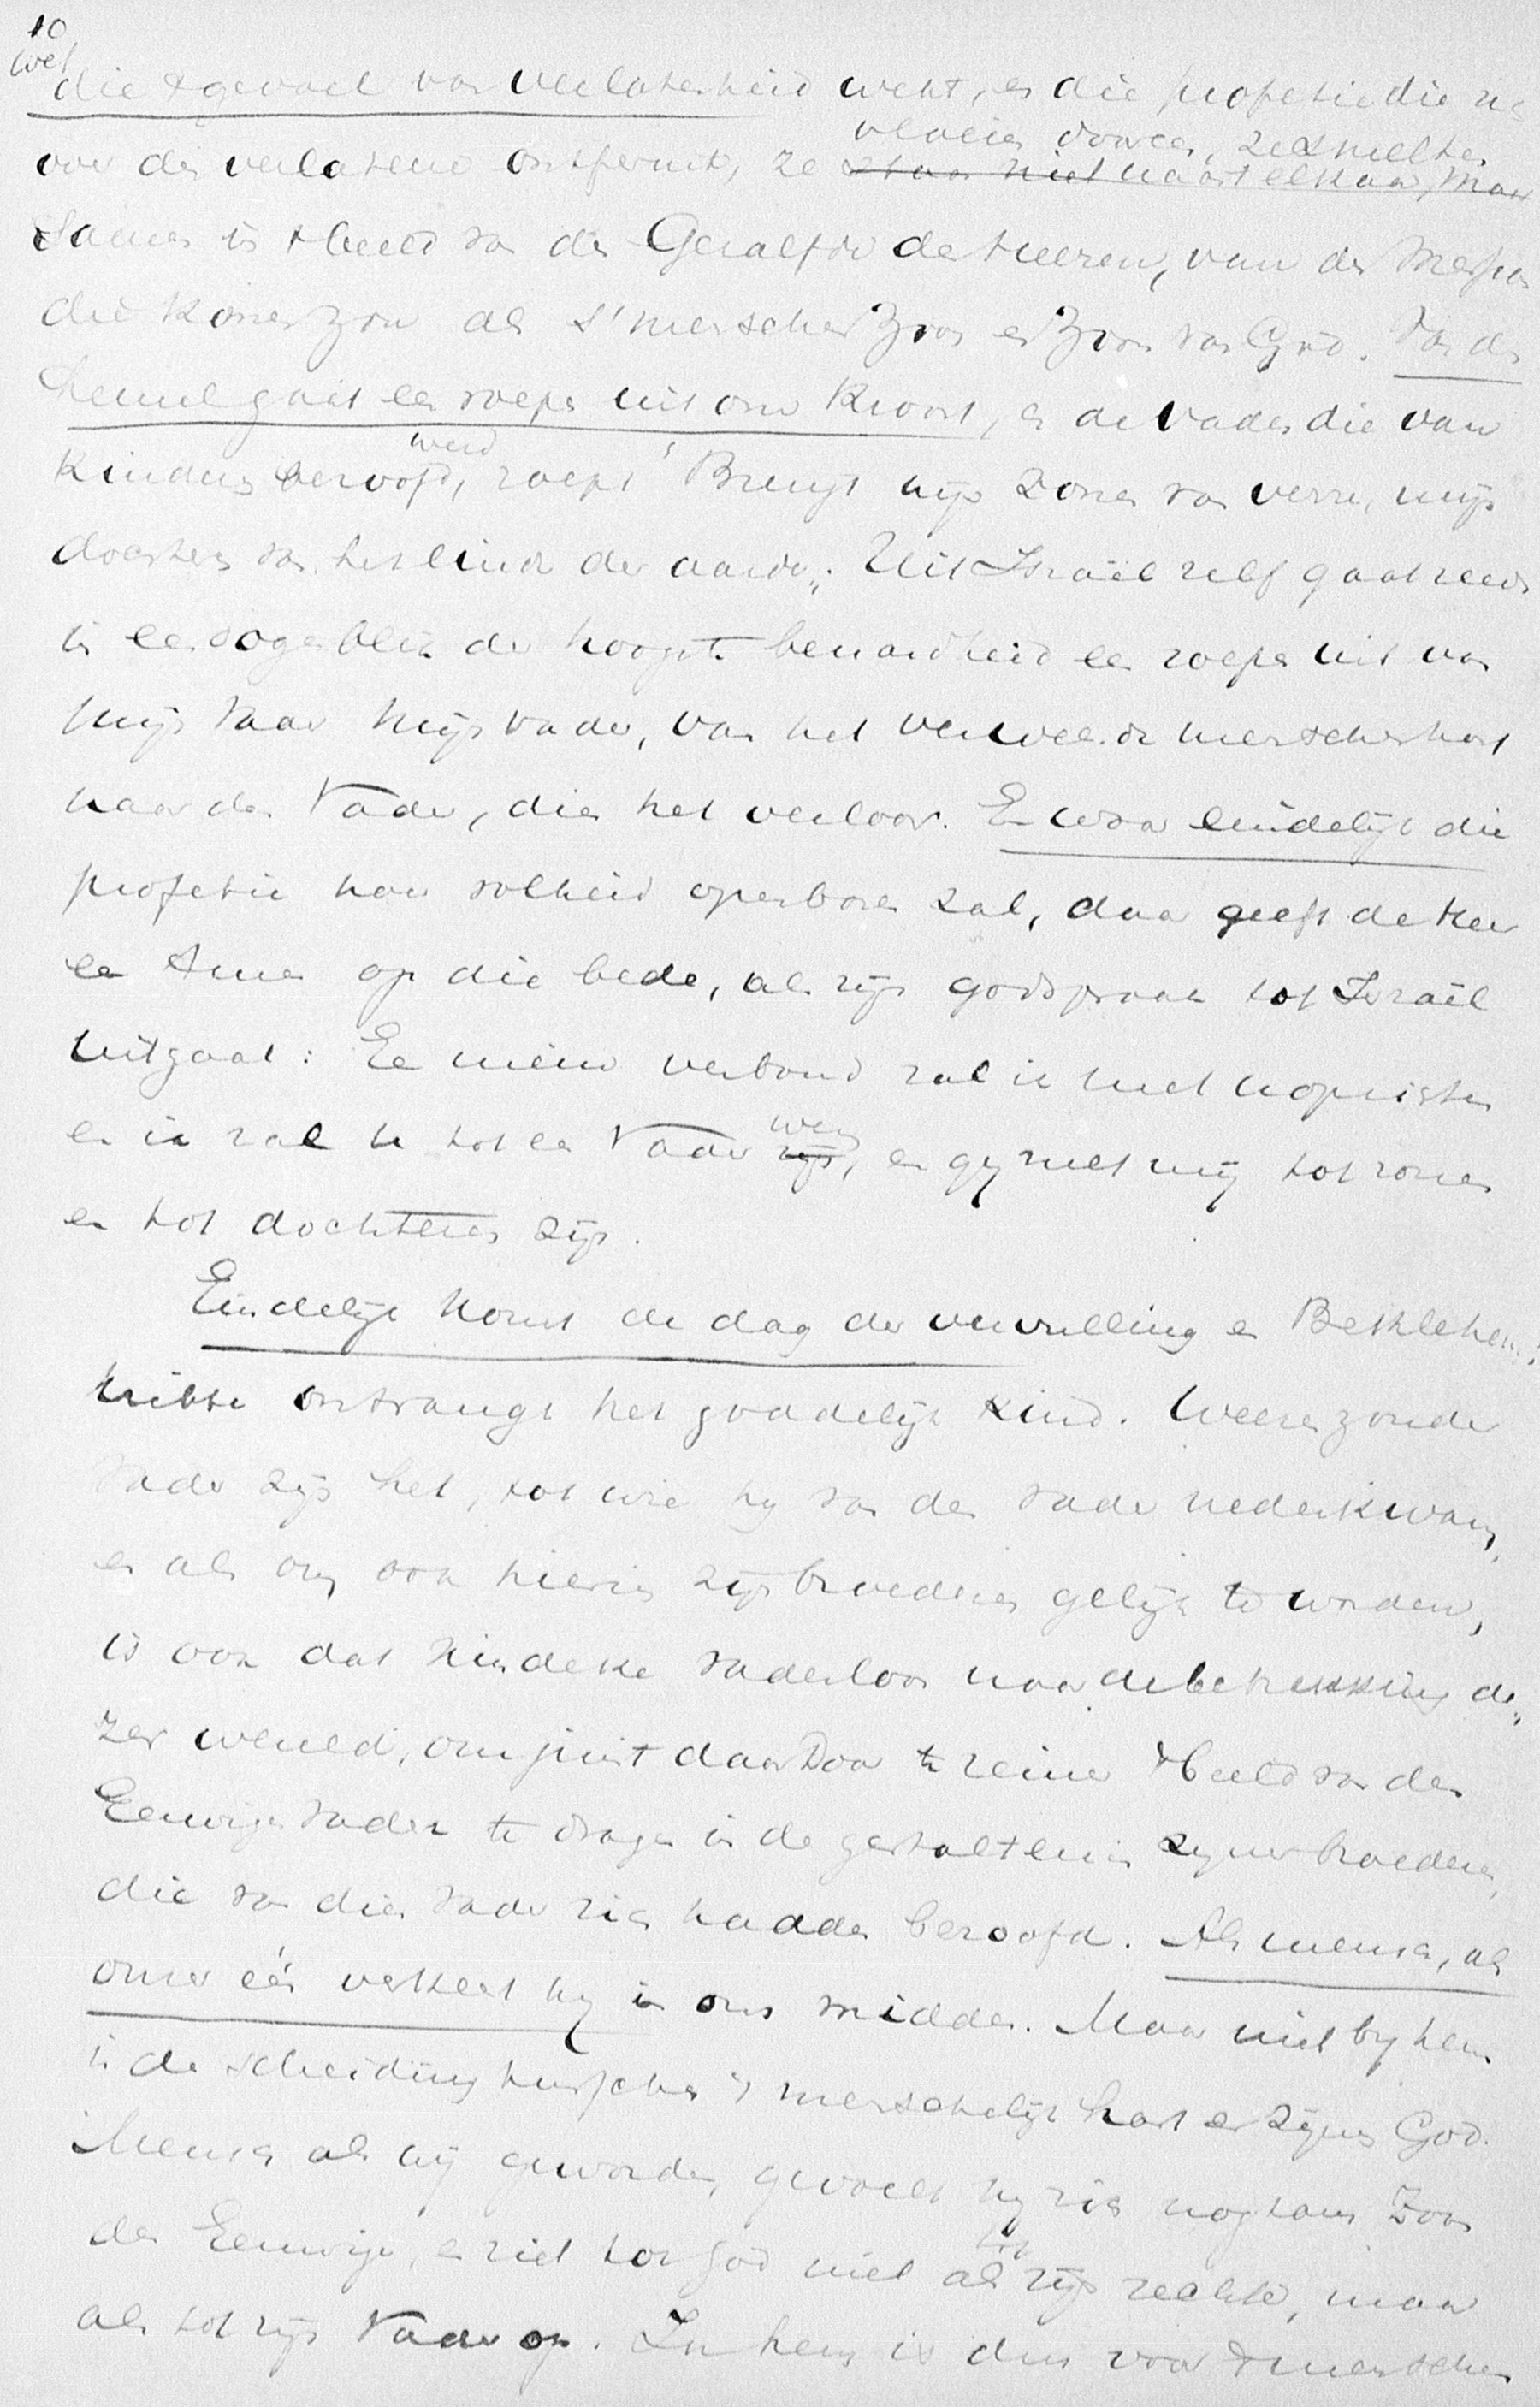 10
wet
die 't gevoel van verlatenheid wekt, en die profetie die zich
vloeien dooreen, ze smelten
over den verlatene ontfermt, ze staan niet naast elkaar, maar
samen in 't beeld van den Gezalfde des Heeren, van den Messias
die komen zou als 's menschen Zoon en Zoon van God. Van den
hemel gaat een roepen uit om kroost, en de Vader die van
werd
kinderen beroofd, roept 'Brengt mijn zonen van verre, mijn
dochters van het einde der aarde„. Uit Israël zelf gaat reeds
in een oogenblik der hoogste benauwdheid een roepen uit van
mijn Vader mijn Vader, van het verweesde menschenhart
naar den Vader, dien het verloor. En waar eindelijk die
profetie haar volheid openbaren zal, daar geeft de Heer
een Amen op die bede, als zijn godspraak tot Israël
uitgaat: Een nieuw verbond zal ik met u oprichten
wezen
en ik zal u tot een Vader zijn, en gy zult mij tot zonen
en tot dochteren zijn.
Eindelijk komt de dag der vervulling en Bethlehems
kribbe ontvangt het goddelijk kind. Weezen zonder
vader zijn het, tot wie hy van den vader nederkwam,
en als om ook hierin zijn broederen gelijk te worden,
is ook dat kindeke vaderloos naar de betrekking de„
zer wereld, om juist daardoor te reiner 't beeld van den
Eeuwigen vader te dragen in de gestaltenis zyner broederen,
die van dien vader zich hadden beroofd. Als mensch, als
onzer één verkeert hy in ons midden. Maar niet by hem
is de scheiding tusschen 't menschelijk hart en zijnen God.
Mensch als wij geworden, gevoelt hy zich nogtans Zoon
des Eeuwigen, en ziet tot God niet als tot zijn rechter, maar
als tot zijn Vader op. In hem is dus voor 't menschen